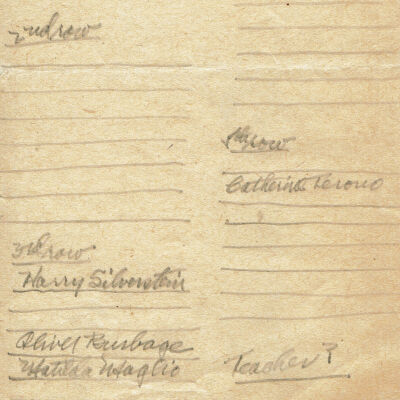 2nd row
3rd row
Harry Silverstein
Oliver Burbage
Matilda Maglio
4th row
Catherine Terono
Teacher?